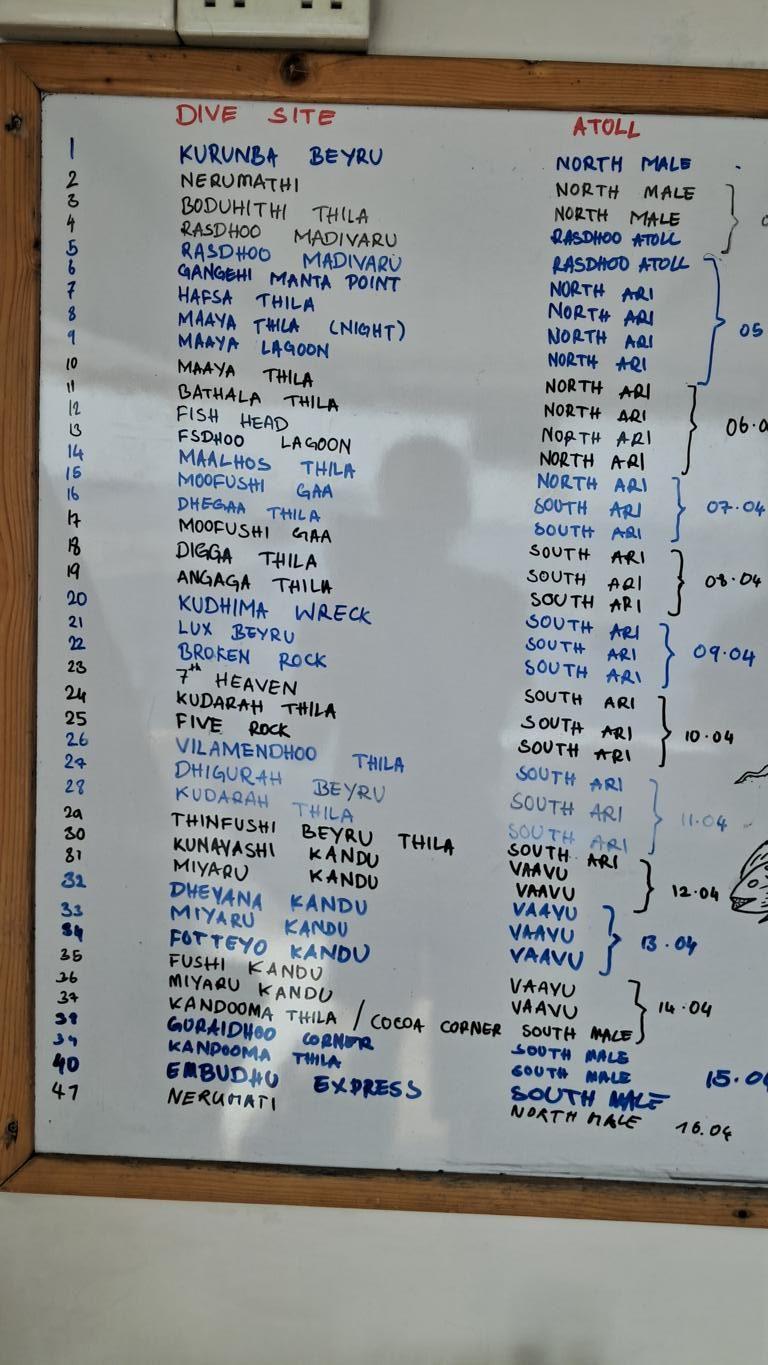 DIVE SITE ATOLL
1 KURUNBA BEYRU NORTH MALE
2 NERUMATHI NORTH MALE
3 BODUHITHI THILA NORTH MALE
4 RASDHOO MADIVARU RASDHOO ATOLL
5 RASDHOO MADIVARU RASDHOO ATOLL
6 GANGEHI MANTA POINT NORTH ARI
7 HAFSA THILA NORTH ARI 05
8 MAAYA THILA (NIGHT) NORTH ARI
9 MAAYA LAGOON NORTH ARI
10 MAAYA THILA NORTH ARI
11 BATHALA THILA NORTH ARI 06.0
12 FISH HEAD NORTH ARI
13 FSDHOO LAGOON NORTH ARI
14 MAALHOS THILA NORTH ARI
15 MOOFUSHI GAA SOUTH ARI 07.04
16 DHEGAA THILA SOUTH ARI
17 MOOFUSHI GAA SOUTH ARI
18 DIGGA THILA SOUTH ARI 08.04
19 ANGAGA THILA SOUTH ARI
20 KUDHIMA WRECK SOUTH ARI
21 LUX BEYRU SOUTH ARI 09.04
22 BROKEN ROCK SOUTH ARI
23 7th HEAVEN SOUTH ARI
24 KUDARAH THILA SOUTH ARI 10.04
25 FIVE ROCK SOUTH ARI
26 VILAMENDHOO THILA SOUTH ARI
27 DHIGURAH BEYRU SOUTH ARI 11.04
28 KUDARAH THILA SOUTH ARI
29 THINFUSHI BEYRU THILA SOUTH ARI
30 KUNAVASHI KANDU VAAVU 12.04
31 MIYARU KANDU VAAVU
32 DHEVANA KANDU VAAVU
33 MIYARU KANDU VAAVU 13.04
34 FOTTEYO KANDU VAAVU
35 FUSHI KANDU VAAVU
36 MIYARU KANDU VAAVU 14.04
37 KANDOOMA THILA / COCOA CORNER SOUTH MALE
38 GURAIDHOO CORNER SOUTH MALE
39 KANDOOMA THILA SOUTH MALE 15.04
40 EMBUDHU EXPRESS SOUTH MALE
41 NERUMATI NORTH MALE 16.04